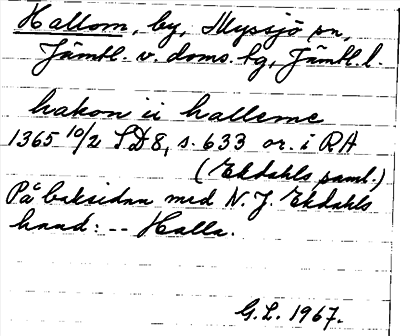 Hallom, by, Myssjö sn,
Jämtl. v. doms. tg, Jämtl. l.
hakon ii halleme
1365 10/2 SD 8, s. 633 or. i RA
(Ekdahls saml.)
På baksidan med N. J. Ekdahls
hand: -- Halla.
G.L. 1967.